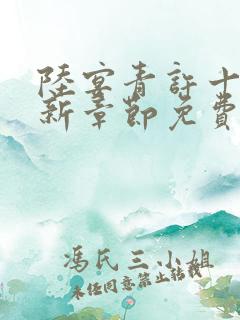 陸宴青許十
新章節免費
馮氏三小姐
未经同意禁止转载